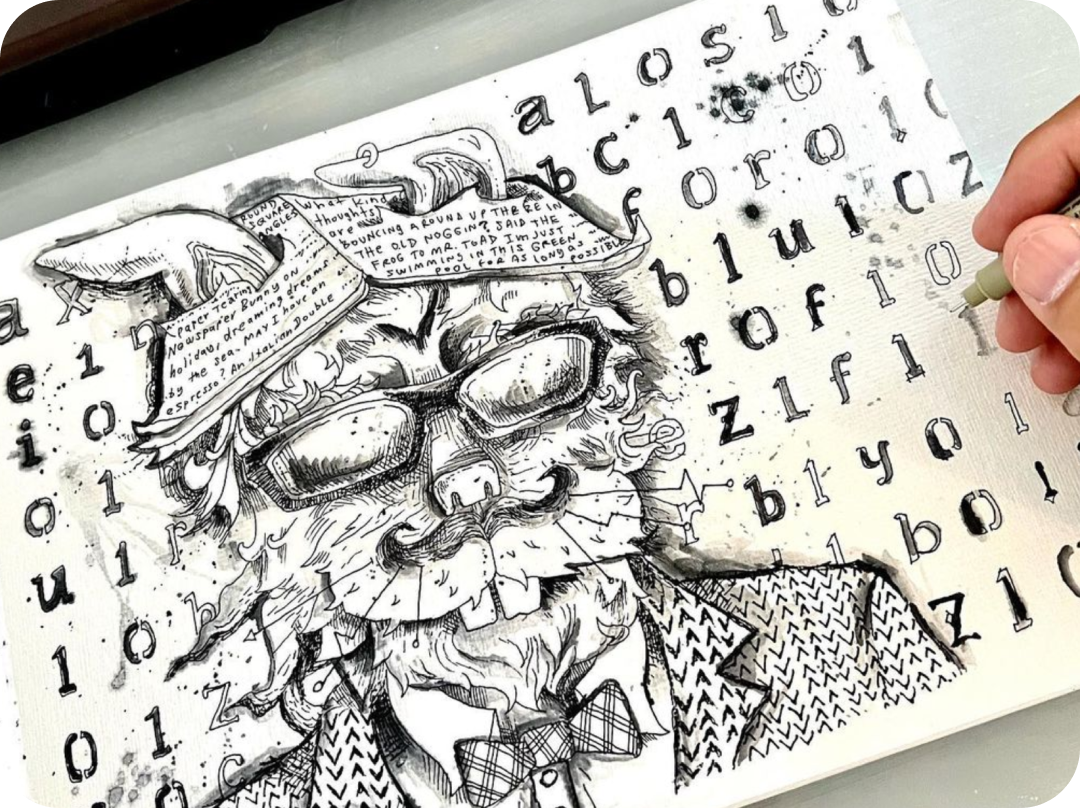 a l o s l
b c l c 0 1
f o r o l
b l u l 0 z
r o f l 0
z l f l
b l y o l
l b o l
z l
a x n
e l
i o
o l
u l r
l o b
l z
0 c
ROUND
SQUARE
ANGLES
What kind
thoughts
are
BOUNCING AROUND UP THERE IN
THE OLD NOGGIN? SAID THE
FROG TO MR. TOAD I'm JUST
SWIMMING IN THIS GREEN
POOL FOR AS LONG AS
POSSIBLE
paper Tearing
Newspaper Bunny on
holiday, dreaming dreams
by the sea. May I have an
espresso? An Italian Double